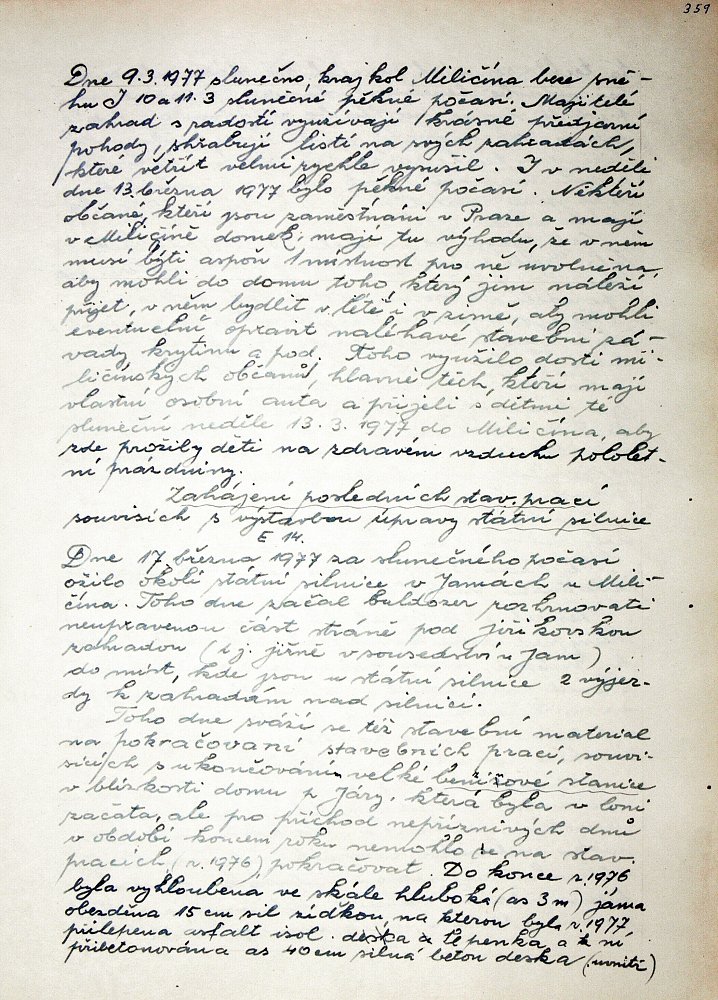 359
Dne 9.3.1977 slunečno, kraj kol Miličína beze sně-
hu I 10 a 11.3 slunečné pěkné počasí. Majitelé
zahrad s radostí využívají krásné předjarní
pohody, shrabují listí na svých zahradách,
které větřit velmi rychle vysušil. I v neděli
dne 13. března 1977 bylo pěkné počasí. Někteří
občané, kteří jsou zaměstnáni v Praze a mají
v Miličíně domek, mají tu výhodu, že v něm
musí býti aspoň 1 místnost pro ně uvolněna,
aby mohli do domu toho, který jim náleží
přijet, v něm bydlit v létě i v zimě, aby mohli
eventuelně opravit naléhavé stavební zá-
vady krytinu a pod. Toho využilo dosti mi-
ličínských občanů, hlavně těch, kteří mají
vlastní osobní auta a přijeli s dětmi té
sluneční neděle 13.3.1977 do Miličína, aby
zde prožily děti na zdravém vzduchu pololet-
ní prázdniny.
Zahájení posledních stav. prací
souvisích s výstavbou úpravy státní silnice
E 14.
Dne 17. března 1977 za slunečného počasí
ožilo okolí státní silnice v Jamách u Mili-
čína. Toho dne začal buldozer rozhrnovati
neupravenou část stráně pod jiříkovskou
zahradou (t.j. jižně v sousedství u Jam)
do míst, kde jsou u státní silnice 2 výjez-
dy k zahradám nad silnicí.
Toho dne sváží se též stavební material
na pokračovaní stavebních prací, souvi-
sících s ukončováním velké benzinové stanice
v blízkosti domu p. Járy, která byla v loni
začata, ale pro příchod nepříznivých dnů
v období koncem roku nemohlo se na stav.
pracích, (r. 1976) pokračovat. Do konce r. 1976
byla vyhloubena ve skále hluboká (as 3 m) jáma
obezděna 15 cm sil zídkou, na kterou byla r. 1977
přilepena asfalt isol. deska a lepenka a k ní
přibetonována as 40 cm silná beton deska (uvnitř)